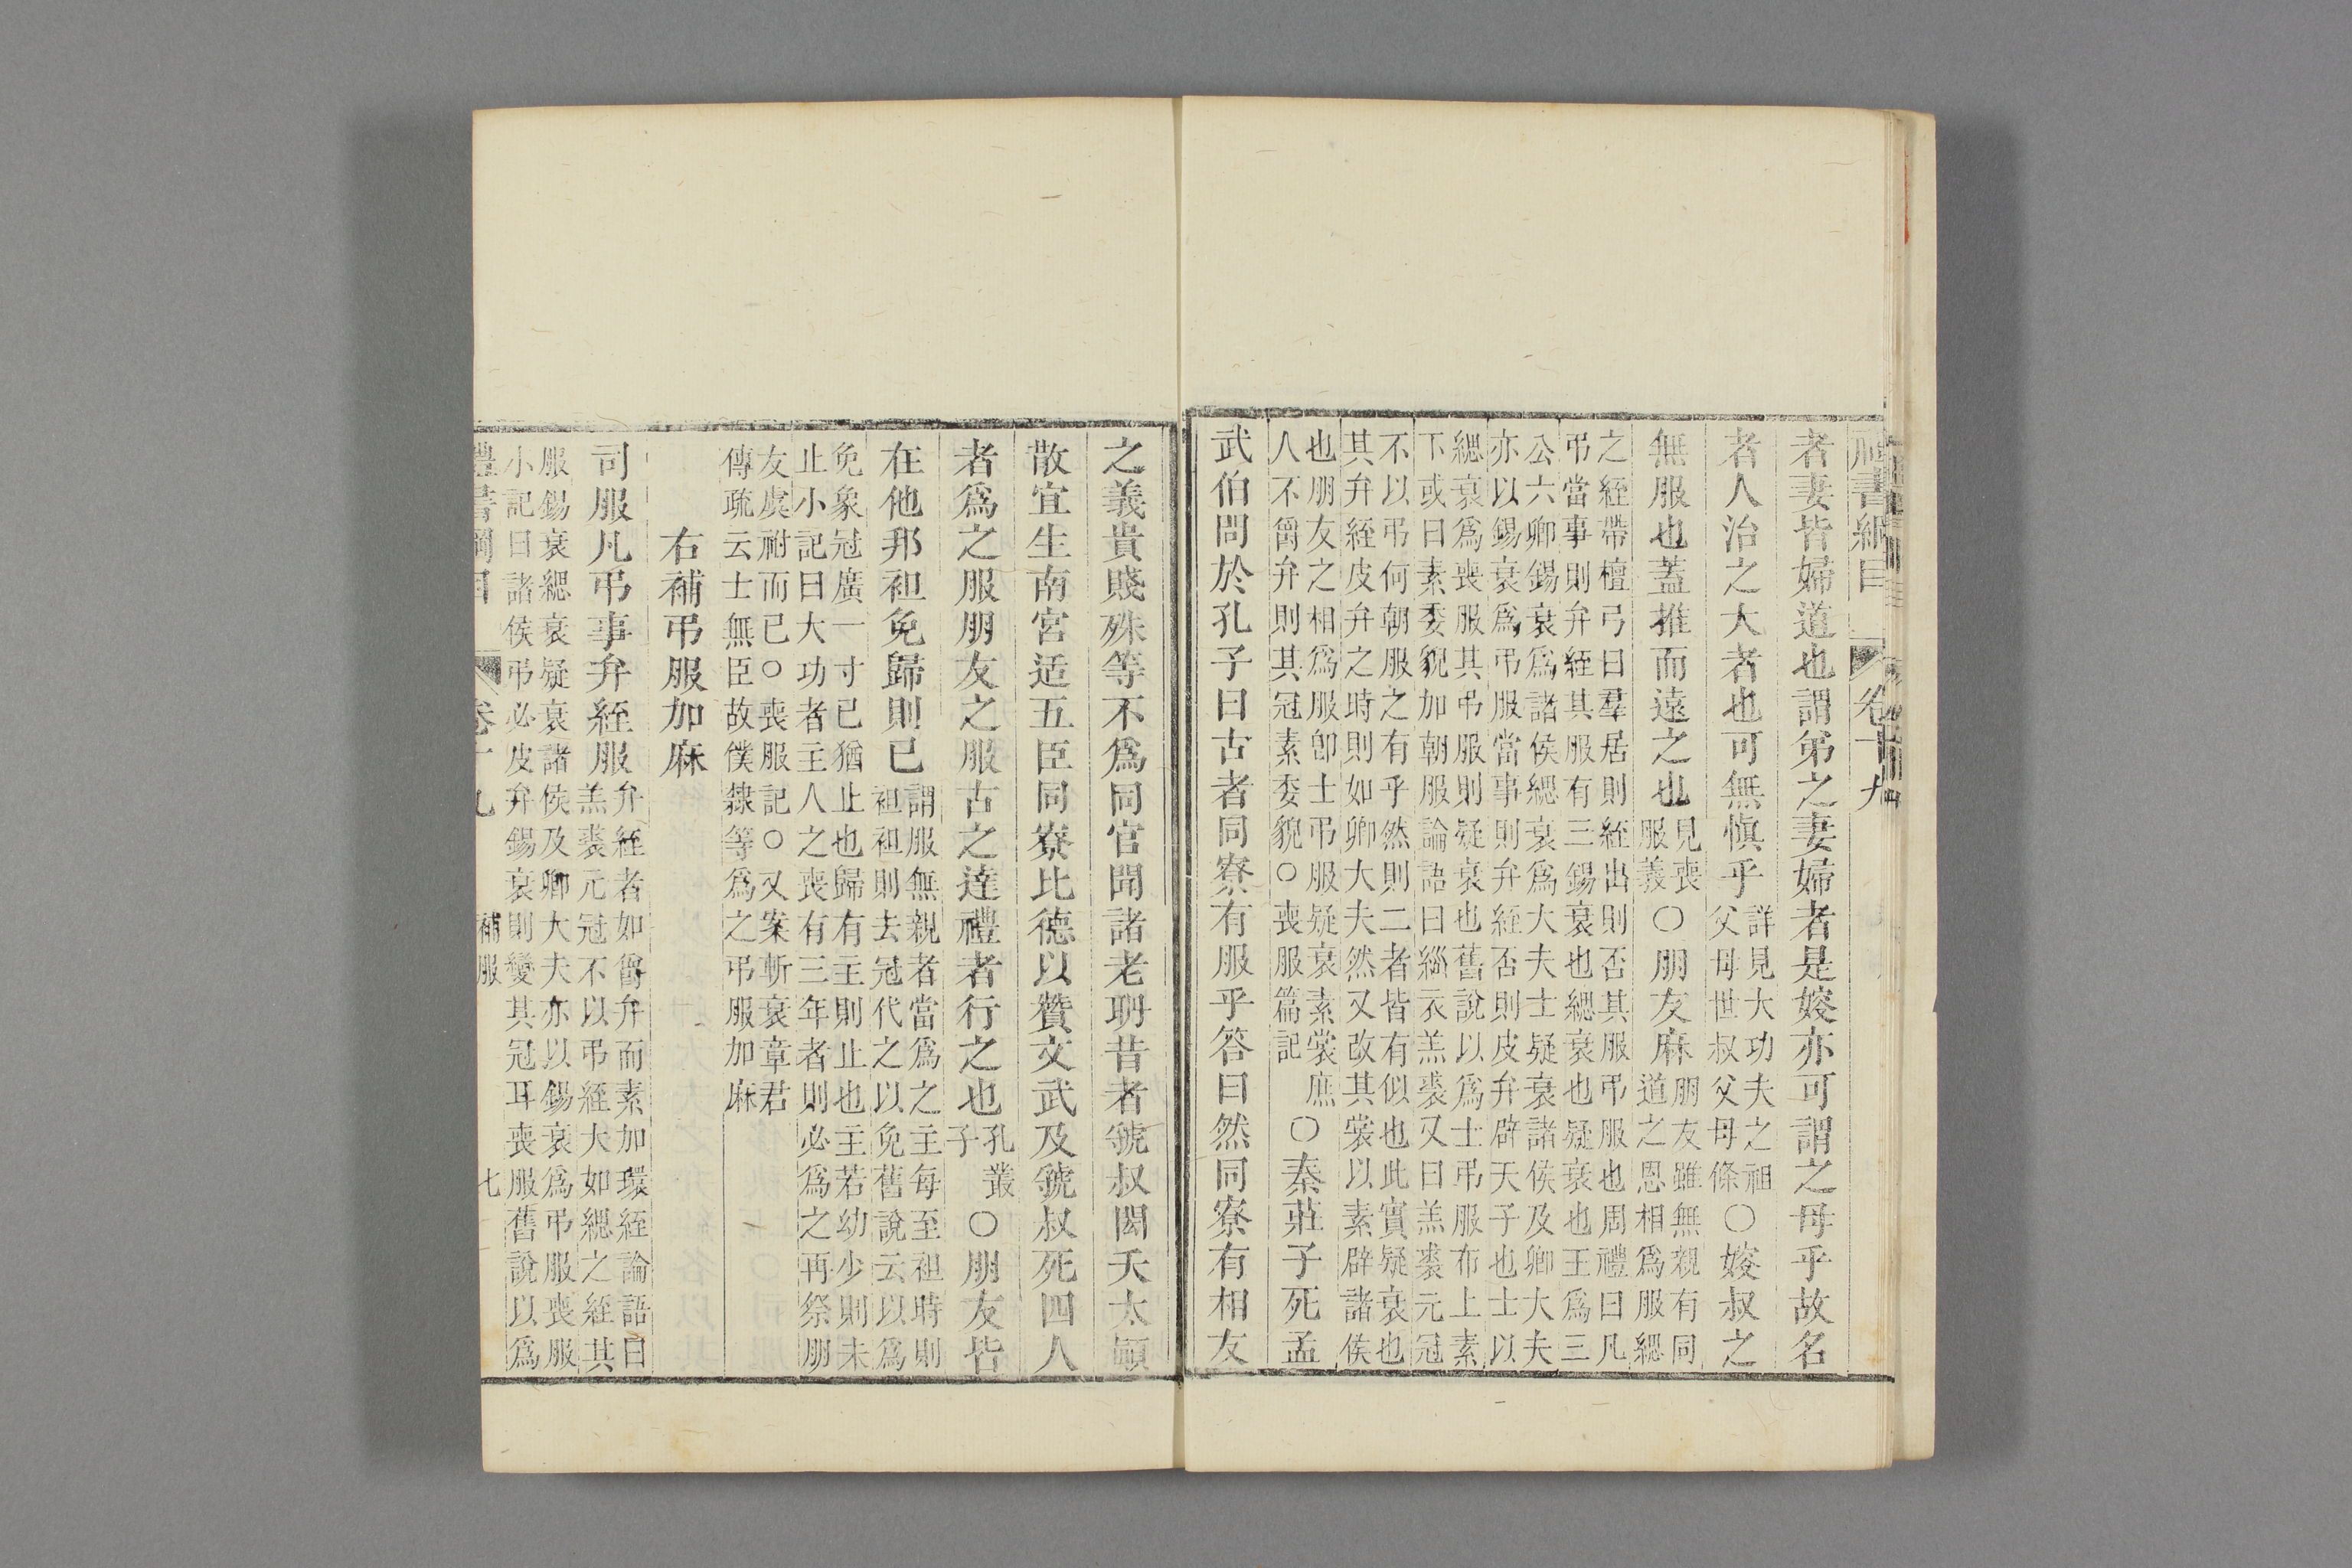 禮書綱目 卷十九
者妻皆婦道也謂弟之妻婦者是嫂亦可謂之母乎故名
者人治之大者也可無慎乎詳見大功夫之祖父母世叔父母條〇嫂叔之
無服也蓋推而遠之也見喪服義〇朋友麻朋友雖無親有同道之恩相爲服緦
之絰帶檀弓曰羣居則絰出則否其服弔服也周禮曰凡
弔當事則弁絰其服有三錫衰也緦衰也疑衰也王爲三
公六卿錫衰爲諸侯緦衰爲大夫士疑衰諸侯及卿大夫
亦以錫衰爲弔服當事則弁絰否則皮弁辟天子也士以
緦衰爲喪服其弔服則疑衰也舊說以爲士弔服布上素
下或曰素委貌加朝服論語曰緇衣羔裘又曰羔裘元冠
不以弔何朝服之有乎然則二者皆有似也此實疑衰也
其弁絰皮弁之時則如卿大夫然又改其裳以素辟諸侯
也朋友之相爲服卽士弔服疑衰素裳庶
人不爵弁則其冠素委貌○喪服篇記〇秦莊子死孟
武伯問於孔子曰古者同寮有服乎答曰然同寮有相友
之義貴賤殊等不爲同官聞諸老聃昔者虢叔閎夭太顚
散宜生南宮适五臣同寮比德以贊文武及虢叔死四人
者爲之服朋友之服古之達禮者行之也孔叢子〇朋友皆
在他邦袒免歸則已謂服無親者當爲之主每至袒時則袒袒則去冠代之以免舊說云以爲
免象冠廣一寸已猶止也歸有主則止也主若幼少則未
止小記曰大功者主人之喪有三年者則必爲之再祭朋
友虞祔而已○喪服記○又案斬衰章君
傳疏云士無臣故僕隸等爲之弔服加麻
右補弔服加麻
司服凡弔事弁絰服弁絰者如爵弁而素加環絰論語曰羔裘元冠不以弔絰大如緦之絰其
服錫衰緦衰疑衰諸侯及卿大夫亦以錫衰爲弔服喪服
小記曰諸侯弔必皮弁錫衰則變其冠耳喪服舊說以爲
禮書綱目 卷十九 補服 七